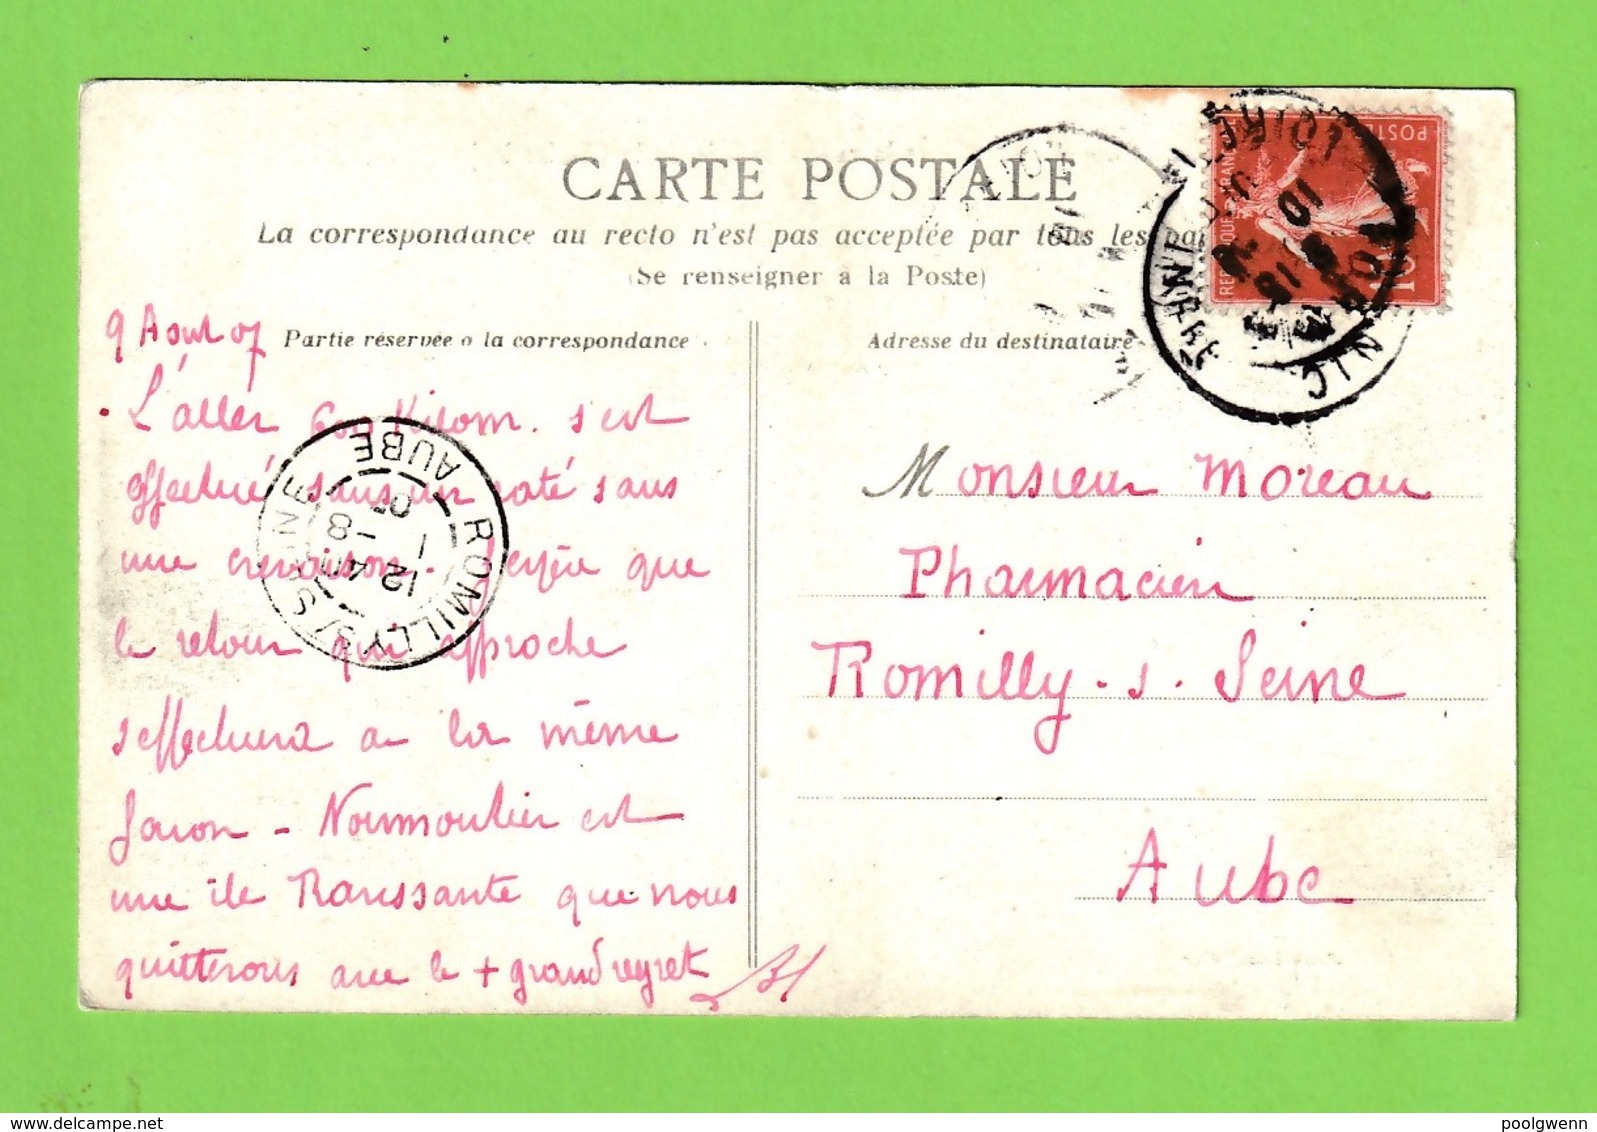 CARTE POSTALE
La correspondance au recto n'est pas acceptée par tous les pa
(Se renseigner à la Poste)
Partie réservée à la correspondance
Adresse du destinataire
9 Août 07
L'aller 600 Kilom. s'est
effectué sans un raté sans
une crevaison. J'espère que
le retour qui approche
s'effectuera de la même
façon - Noirmoutier est
une île Ravissante que nous
quitterons avec le + grand regret
Monsieur Moreau
Pharmacien
Romilly-s-Seine
Aube
ROMILLY S/SEINE
AUBE
12 8
POSTES
10
LOIRE INFRE
poolgwenn